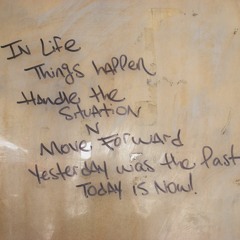 In Life
Things happen
Handle the
Situation
N
Move Forward
Yesterday was the Past
Today is Now!